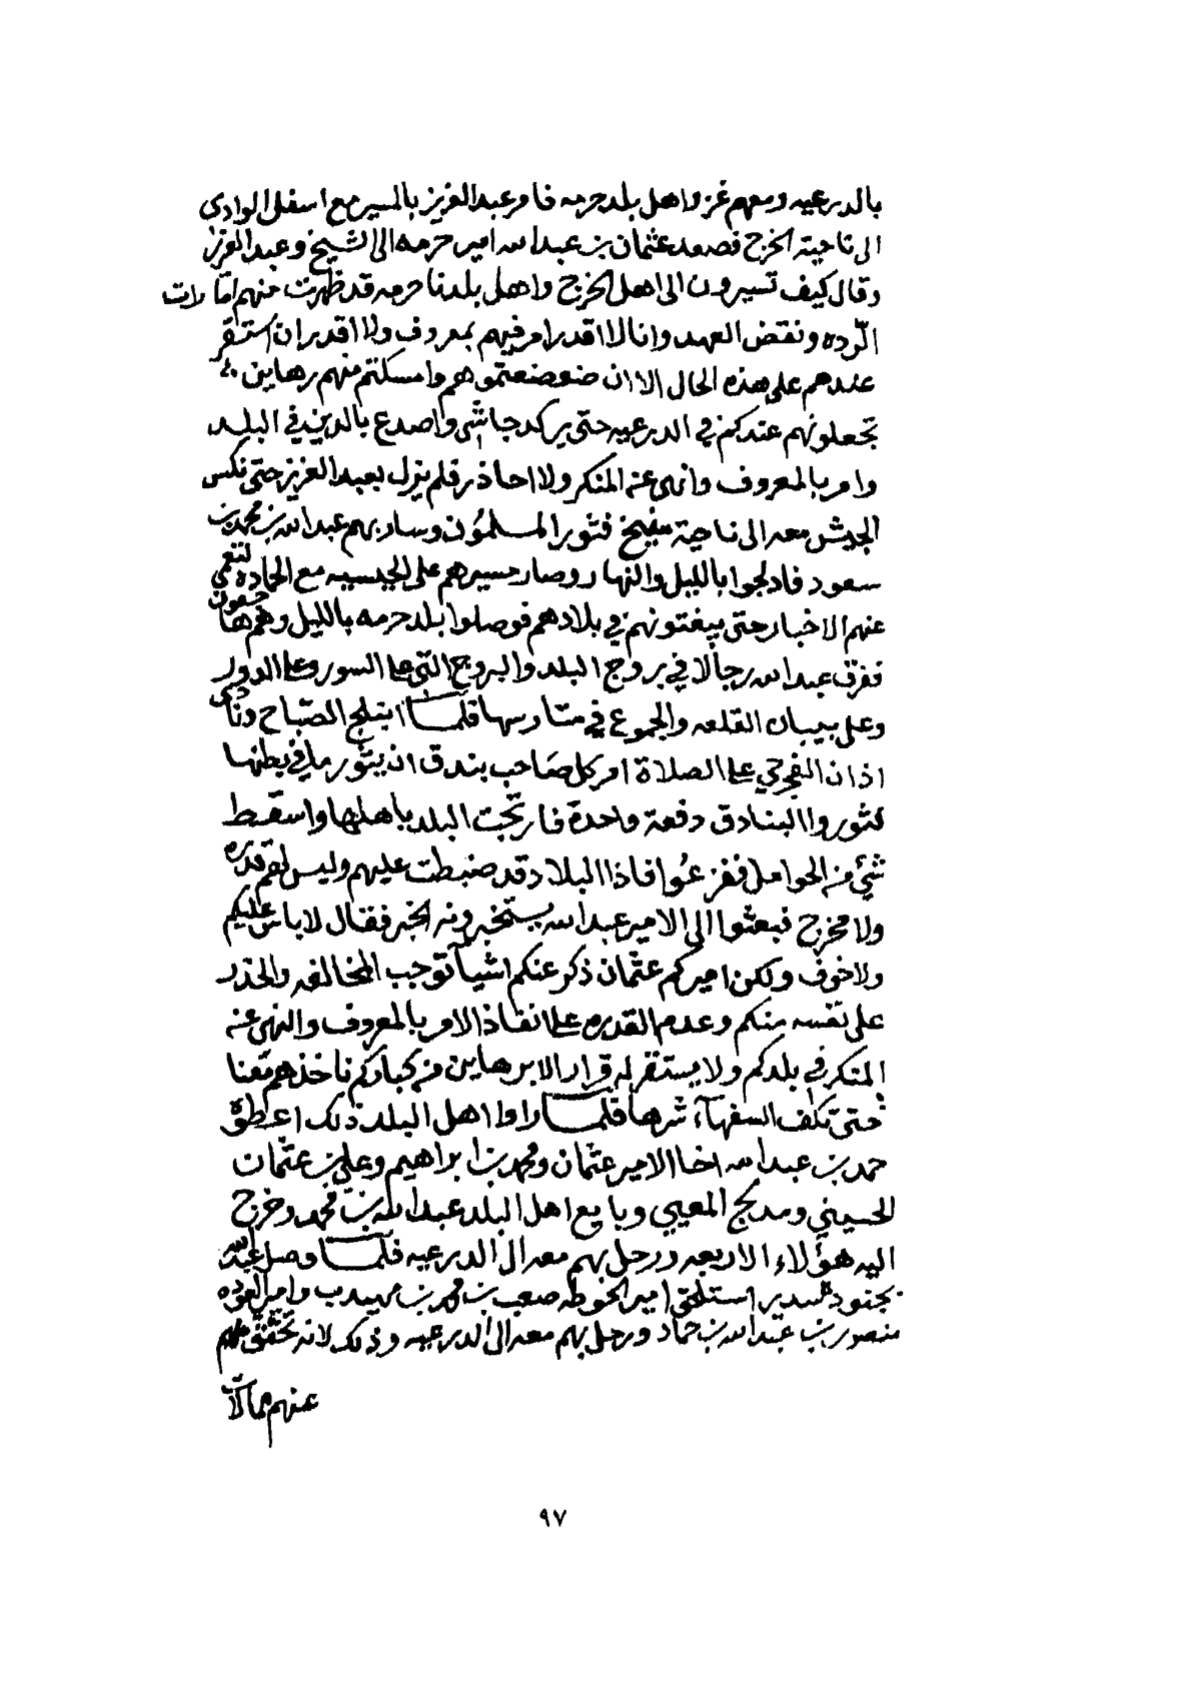 بالدرعيه ومعهم غزو اهل بلد حرمه فامر عبدالعزيز بالمسير مع اسفل الوادى
الى ناحية الخرج فصعد عثمان بن عبدالله امير حرمه الى الشيخ وعبدالعزيز
وقال كيف تسيرون الى اهل الخرج واهل بلدنا حرمه قد ظهرت منهم امارات
الرّده ونقض العهد وانا لا اقدر امر فيهم بمعروف ولا اقدر ان استقر
عندهم على هذه الحال الا ان ضعضعتموهم وامسكتم منهم رهاين
تجعلونهم عندكم في الدرعيه حتى يركد جاشي واصدع بالدين في البلد
وامر بالمعروف وانهى عن المنكر ولا احاذر فلم يزل بعبدالعزيز حتى نكس
الجيش معه الى ناحية منيخ فثور المسلمُون وسار بهم عبدالله بن محمد بن
سعود فادلجوا بالليل والنهار وصار مسيرهم على الجيسيه مع الحماده لتعمى
عنهم الاخبار حتى يبغتونهم في بلادهم فوصلوا بلد حرمه بالليل وهم هاجعون
ففرق عبدالله رجالا في بروج البلد والبروج التي على السور وعلى الدور
وعلى بيبان القلعه والجموع في متارسها فلما انبلج الصّباح ونادى
اذان الفجر حي على الصلاة امر كل صَاحب بندق ان يثور ما في بطنها
فثوروا البنادق دفعة واحدة فارتجت البلد باهلها واسقط
شيء من الحوامل ففزعُوا فاذا البلاد قد ضبطت عليهم وليس لهم قدره
ولا مخرج فبعثوا الى الامير عبدالله يستخبرونه الخبر فقال لا باس عليكم
ولا خوف ولكن اميركم عثمان ذكر عنكم اشيآ توجب المخالفه والحذر
على نفسه منكم وعدم القدره على انفاذ الامر بالمعروف والنهى عن
المنكر في بلدكم ولا يستقر له قرار الا برهاين من كباركم ناخذهم معنا
حتى تكف السفهآء شرها فلما راوا اهل البلد ذلك اعطوه
حمد بن عبدالله اخا الامير عثمان ومحمد بن ابراهيم وعلي بن عثمان
الحسيني ومدلج المعيي وبايع اهل البلد عبدالله بن محمد وخرج
اليه هؤلاء الاربعه ورحل بهم معه الى الدرعيه فلما وصل عبدالله
بجنوده سدير استلحق امير الحوطه صعب بن محمد بن مهيدب وامير العوده
منصور بن عبدالله بن حماد ورحل بهم معه الى الدرعيه وذلك لانه تحقق
عنهم ممالات
٩٧